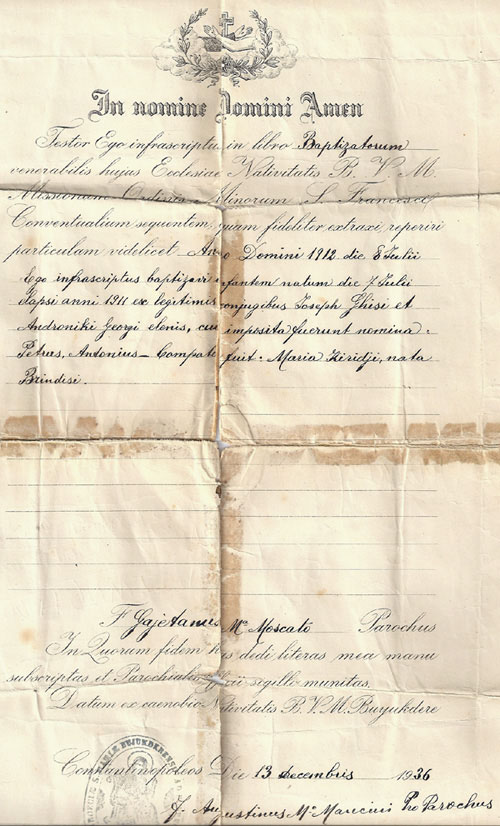 In nomine Domini Amen
Testor Ego infrascriptus in libro Baptizatorum
venerabilis hujus Ecclesiae Nativitatis B. V. M.
Missionum Ordinis Minorum S. Francisci
Conventualium sequentem, quam fideliter extraxi, reperiri
particulam videlicet Anno Domini 1912 die 8 Julii
Ego infrascriptus baptizavi infantem natum die 7 Julii
elapsi anni 1911 ex legitimis conjugibus Joseph Ghisi et
Androniki Georgi elenis, cui imposita fuerunt nomina:
Petrus, Antonius – fuit: Maria Kiridji, nata
Brindesi.
F. Gajetanus Ma Moscato Parochus
In Quorum fidem has dedi literas mea manu
subscriptas et Parochialis sigillo munitas.
Datum ex caenobio Nativitatis B. V. M. Buyukdere
Constantinopoleos Die 13 Decembris 1936
F. Augustinus Ma Mancini Pro Parochus